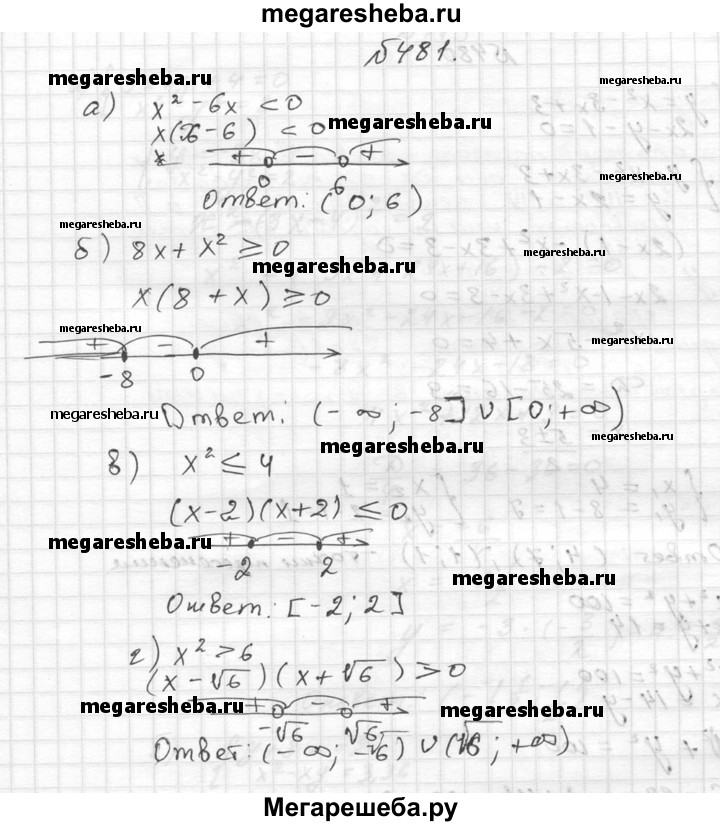 megaresheba.ru
№481.
megaresheba.ru megaresheba.ru
а) x² - 6x < 0
x(x-6) < 0 megaresheba.ru
+ - +
0 6 megaresheba.ru
Ответ: (0; 6)
megaresheba.ru
б) 8x + x² ≥ 0
megaresheba.ru
x(8 + x) ≥ 0
megaresheba.ru
+ - + megaresheba.ru
-8 0
megaresheba.ru Ответ: (-∞; -8] ∪ [0; +∞)
megaresheba.ru
в) x² ≤ 4
(x-2)(x+2) ≤ 0
megaresheba.ru + - +
-2 2
megaresheba.ru
Ответ: [-2; 2]
г) x² > 6
(x-√6)(x+√6) > 0
megaresheba.ru + - + megaresheba.ru
-√6 √6
Ответ: (-∞; -√6) ∪ (√6; +∞)
megaresheba.ru megaresheba.ru
Мегарешеба.ру